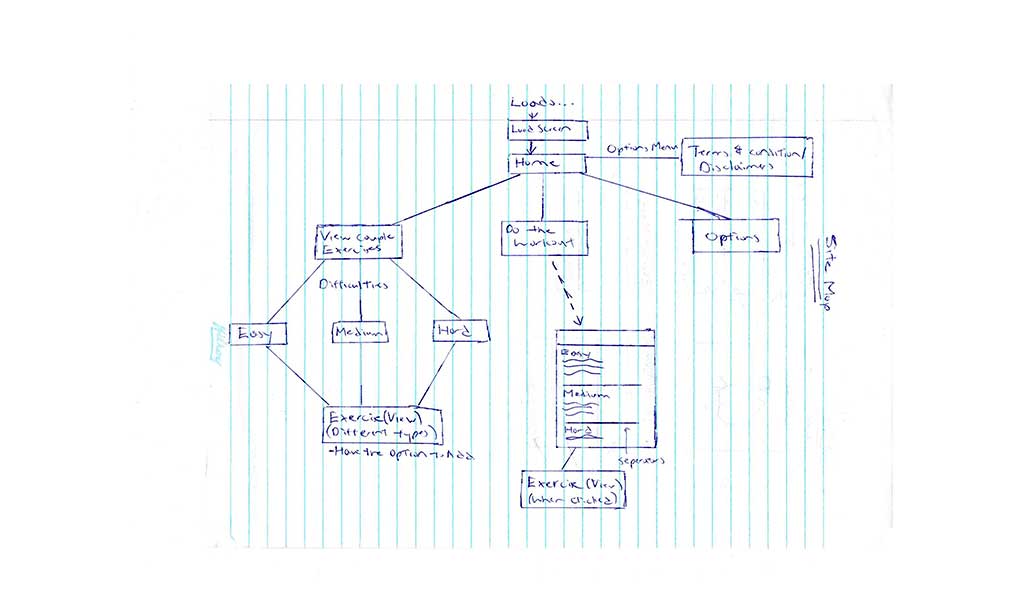 Loads...
Load Screen
Home
Options Menu
Terms & condition/
Disclaimers
View Couple
Exercises
Do the
Workout
Options
Site Map
Difficulties
Easy
Medium
Hard
Easy
Medium
Hard
Exercise(View)
(Different types)
-Have the option to Add
seperators
Exercise(View)
(when clicked)